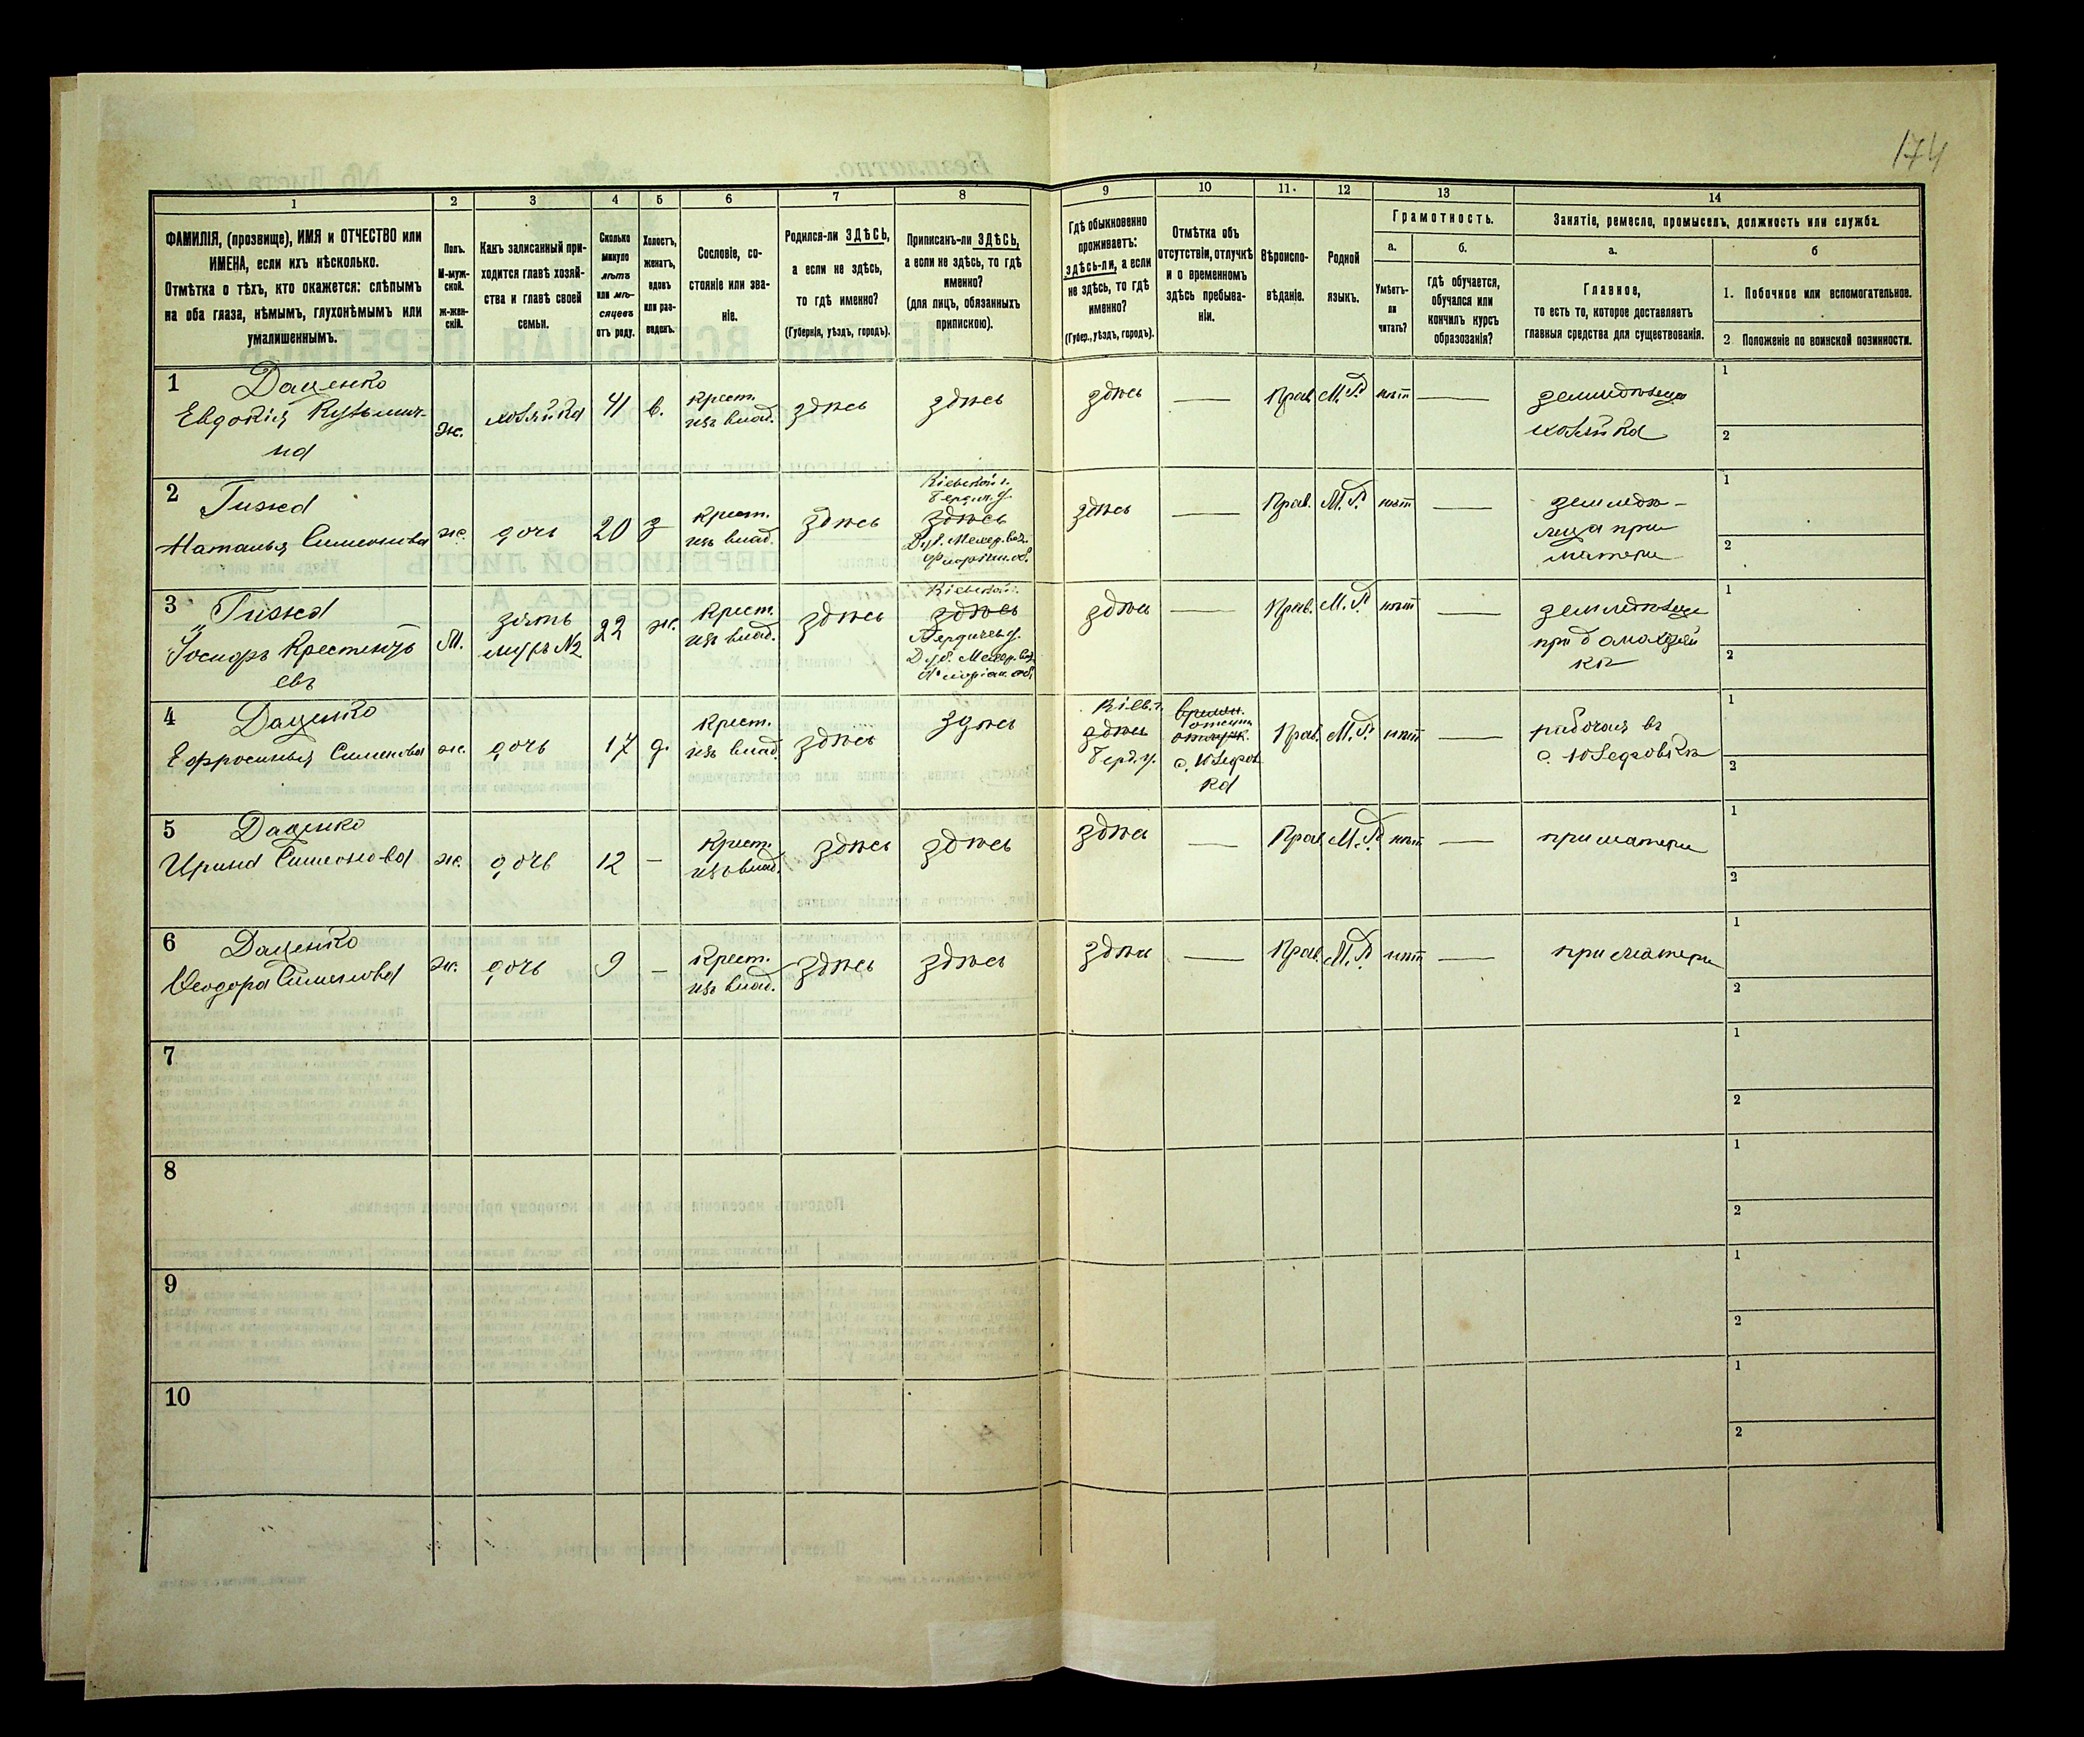 174
1
2
3
4
5
6
7
8
9
10
11.
12
13
14
ФАМИЛІЯ, (прозвище), ИМЯ и ОТЧЕСТВО или
ИМЕНА, если ихъ нѣсколько.
Отмѣтка о тѣхъ, кто окажется: слѣпымъ
на оба глаза, нѣмымъ, глухонѣмымъ или
умалишеннымъ.
Полъ.
М-муж-
ской.
ж-жен-
скій.
Какъ записанный при-
ходится главѣ хозяй-
ства и главѣ своей
семьи.
Сколько
минуло
лѣтъ
или мѣ-
сяцевъ
отъ роду.
Холостъ,
женатъ,
вдовъ
или раз-
веденъ.
Сословіе, со-
стояніе или зва-
ніе.
Родился-ли ЗДѢСЬ,
а если не здѣсь,
то гдѣ именно?
(Губернія, уѣздъ, городъ).
Приписанъ-ли ЗДѢСЬ,
а если не здѣсь, то гдѣ
именно?
(для лицъ, обязанныхъ
припискою).
Гдѣ обыкновенно
проживаетъ:
здѣсь-ли, а если
не здѣсь, то гдѣ
именно?
(Губер., уѣздъ, городъ).
Отмѣтка объ
отсутствіи, отлучкѣ
и о временномъ
здѣсь пребыва-
ніи.
Вѣроиспо-
вѣданіе.
Родной
языкъ.
Грамотность.
а.
Умѣетъ-
ли
читать?
б.
Гдѣ обучается,
обучался или
кончилъ курсъ
образозанія?
Занятіе, ремесло, промыселъ, должность или служба.
а.
Главное,
то есть то, которое доставляетъ
главныя средства для существованія.
б
1. Побочное или вспомогательное.
2 Положеніе по воинской повинности.
1
Даценко
Евдокія Кузьмин-
на
ж.
хозяйка
41
в.
крест.
изъ влад.
здѣсь
здѣсь
здѣсь
—
Прав.
М.Р.
нѣт
—
хозяйка
1
2
2
Наталья Симеонова
ж.
дочь
20
з
крест.
изъ влад.
здѣсь
Кіевской г.
здѣсь
здѣсь
—
Прав.
М.Р.
нѣт
—
земледѣ-
лица при
матери
1
2
3
М.
зять
22
ж.
крест.
изъ влад.
здѣсь
Кіевской г.
здѣсь
Бердичев. у.
здѣсь
—
Прав.
М.Р.
нѣт
—
1
2
4
Даценко
Ефросинья Симеонова
ж.
дочь
17
д.
крест.
изъ влад.
здѣсь
здѣсь
Кіев. г.
здѣсь
Берд. у.
Прав.
М.Р.
нѣт
—
рабочая въ
1
2
5
Даценко
Ирина Симеонова
ж.
дочь
12
—
крест.
изъ влад.
здѣсь
здѣсь
здѣсь
—
Прав.
М.Р.
нѣт
—
при матери
1
2
6
Даценко
Ѳеодора Симеонова
ж.
дочь
9
—
крест.
изъ влад.
здѣсь
здѣсь
здѣсь
—
Прав.
М.Р.
нѣт
—
при матери
1
2
7
1
2
8
1
2
9
1
2
10
1
2